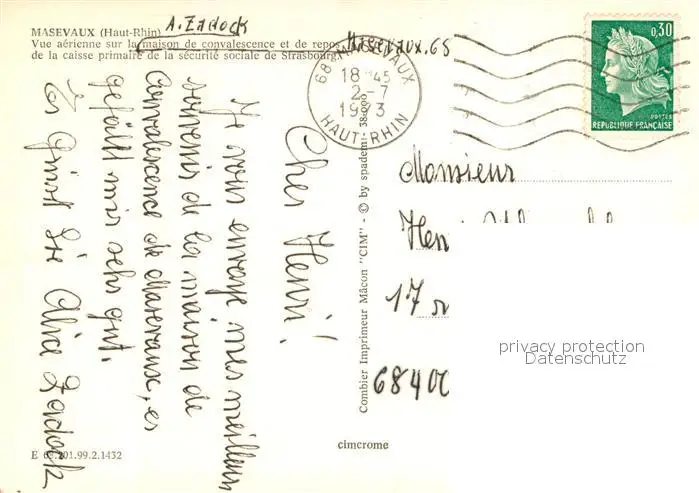 A. Zadock
MASEVAUX (Haut-Rhin)
Vue aérienne sur la maison de convalescence et de repos
de la caisse primaire de la sécurité sociale de Strasbourg.
Masevaux. 68
68 MASEVAUX
18 45
2-7
1973
HAUT-RHIN
0,30
POSTES
REPUBLIQUE FRANÇAISE
Cher Henri!
Je vous envoye mes meilleurs
souvenirs de la maison de
Convalescence de Masevaux, es
gefällt mir sehr gut.
Es grüsst Sie Alice Zadock
Combier Imprimeur Mâcon "CIM" - © by spadem - 38.000
Monsieur
Hen
17 r
6840
privacy protection
Datenschutz
cimcrome
E 68.201.99.2.1432